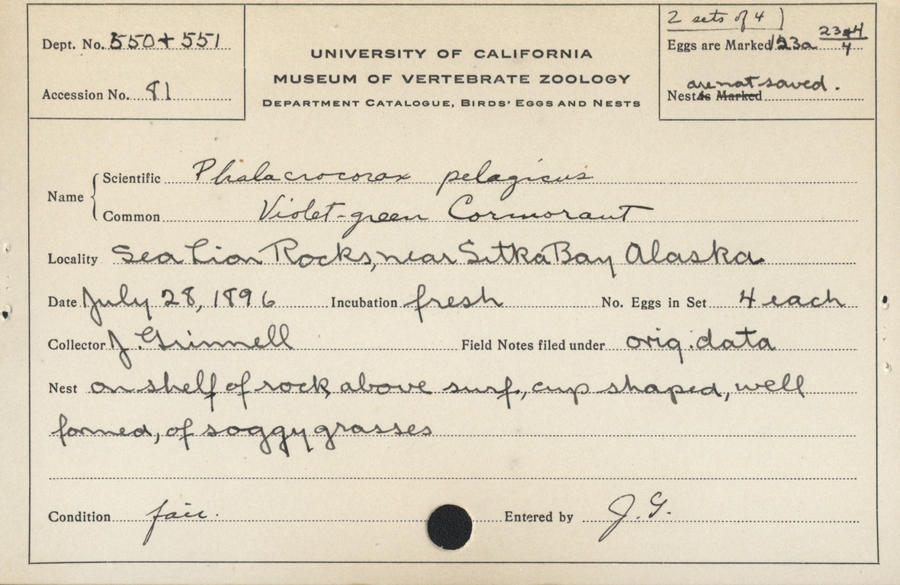 2 sets of 4 )
Dept. No. 550 + 551
UNIVERSITY OF CALIFORNIA
MUSEUM OF VERTEBRATE ZOOLOGY
DEPARTMENT CATALOGUE, BIRDS' EGGS AND NESTS
Eggs are Marked 123a 23a4/4
Accession No. 81
are not saved.
Nest is Marked
Name
Scientific Phalacrocorax pelagicus
Common Violet-green Cormorant
Locality Sea Lion Rocks, near Sitka Bay Alaska
Date July 28, 1896 Incubation fresh No. Eggs in Set 4 each
Collector J. Grinnell Field Notes filed under orig. data
Nest on shelf of rock above surf, cup shaped, well
formed, of soggy grasses
Condition fair. Entered by J. G.